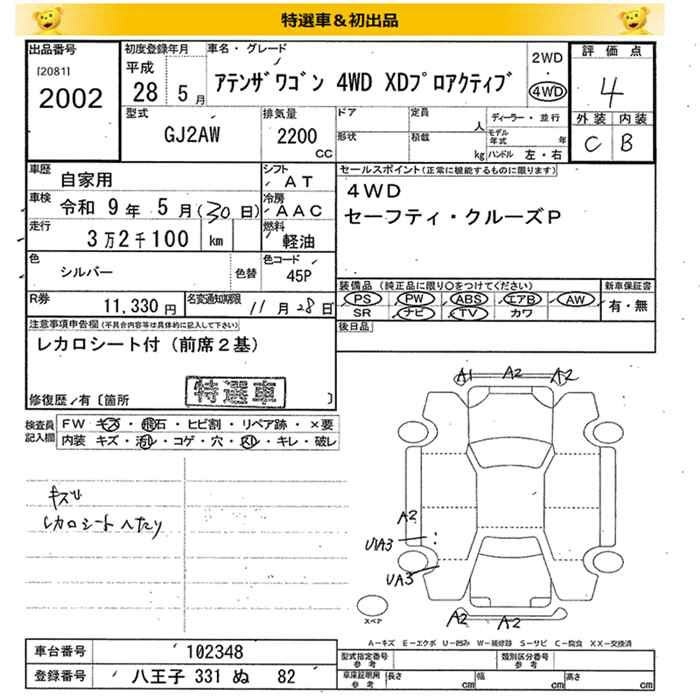 特選車＆初出品
出品番号
[2081]
2002
初度登録年月
平成
28 5月
車名・グレード
アテンザワゴン 4WD XDプロアクティブ
2WD
・
4WD
評価点
4
外装 内装
C B
型式
GJ2AW
排気量
2200
CC
ドア
形状
定員
人
積載
kg
ディーラー・並行
モデル年式 年
ハンドル 左・右
車歴
自家用
シフト
AT
車検
令和 9年 5月(30日)
冷房
AAC
走行
3万2千100 km
燃料
軽油
色
シルバー
色替
色コード
45P
R券
11,330円
名変通知期限
11月28日
セールスポイント(正常に機能するものに限ります)
4WD
セーフティ・クルーズP
装備品(純正品に限り○をつけてください)
PS PW ABS エアB AW
SR ナビ TV カワ
新車保証書
有・無
後日品
注意事項申告欄(不具合内容等は具体的に記入して下さい)
レカロシート付(前席2基)
特選車
修復歴/有〔箇所 〕
検査員記入欄
FW キズ・飛石・ヒビ割・リペア跡・×要
内装 キズ・汚レ・コゲ・穴・スレ・キレ・破レ
キズ
レカロシートへたり
A1 A2 A2
A2
U1A3
UA3
A2 A2
スペア
A−キズ E−エクボ U−凹み W−補修跡 S−サビ C−腐食 XX−交換済
車台番号
102348
登録番号
八王子 331 ぬ 82
型式指定番号
参考
類別区分番号
参考
車庫証明用
参考
長さ cm
幅 cm
高さ cm